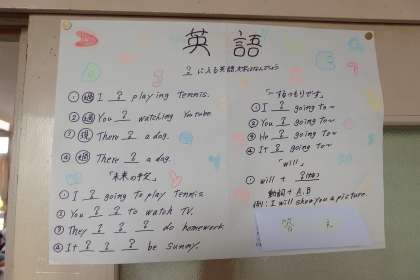 英語
?に入る英語、文字はなんでしょう
① 過 I ? playing Tennis.
② 過 You ? watching Youtube
③ 現 There ? a dog.
④ 過 There ? a dog.
「未来の予定」
① I ? going to play Tennis
② You ? ? to watch TV.
③ They ? ? ? do homework
④ It ? ? ? be sunny.
「〜するつもりです」
① I ? going to~
② You ? going to~
③ He ? going to~
④ It ? going to~
「will」
① will +
動詞 + A.B
例: I will show you a picture.
答え